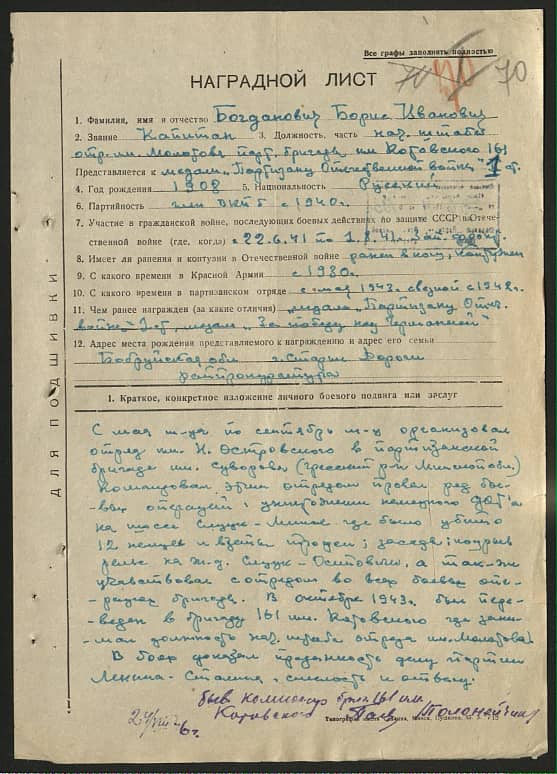 Все графы заполнять полностью
70
НАГРАДНОЙ ЛИСТ
1. Фамилия, имя и отчество Богданович Борис Иванович
2. Звание Капитан 3. Должность, часть нач. штаба
отр. им. Молотова парт. бригады им Котовского 161
Представляется к медали „Партизану Отечественной войны" 1 ст.
4. Год рождения 1908 5. Национальность Русский
6. Партийность член ВКП б с 1940г.
7. Участие в гражданской войне, последующих боевых действиях по защите СССР и Отече-
ственной войне (где, когда) с 22.6.41 по
8. Имеет ли ранения и контузии в Отечественной войне ранен в ногу, контужен
9. С какого времени в Красной Армии с 1930г.
10. С какого времени в партизанском отряде с мая 1943г. связной с 1942г.
11. Чем ранее награжден (за какие отличия) медаль „Партизану Отеч.
войны" 2 ст, медаль „За победу над Германией"
12. Адрес места рождения представляемого к награждению и адрес его семьи
Бобруйская обл г. Старые Дороги
райпрокуратура
1. Краткое, конкретное изложение личного боевого подвига или заслуг
С мая м-ца по сентябрь м-ц организовал
отряд им. Н. Островского в партизанской
бригаде им. Суворова (Гресский р-н Минской обл.)
Командовал этим отрядом провел ряд бое-
вых операций: уничтожении немецкого
на шоссе Слуцк-Минск где было убито
12 немцев и взяты трофеи; засада; подрыв
рельс на ж.д. Слуцк-Осиповичи, а так-же
участвовал с отрядом во всех боевых опе-
рациях бригады. В октябре 1943г. был пере-
веден в бригаду 161 им. Котовского где зани-
мал должность нач. штаба отряда им. Молотова.
В боях доказал преданность делу партии
Ленина-Сталина, смелость и отвагу.
быв комиссар бриг. 161 им.
Котовского
ДЛЯ ПОДШИВКИ